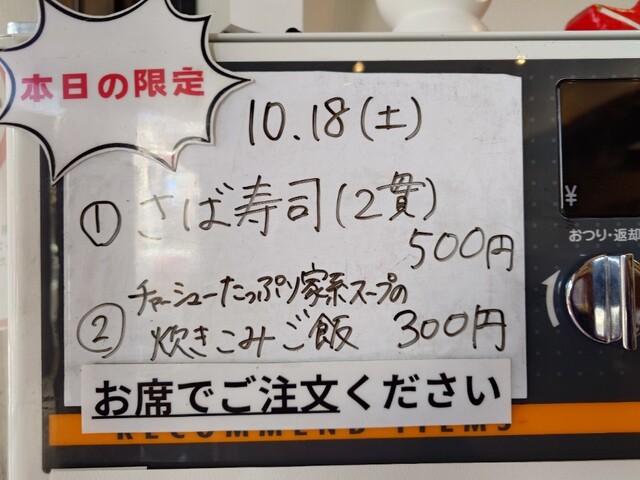 本日の限定
10.18(土)
① さば寿司(2貫)
500円
チャーシューたっぷり家系スープの
② 炊きこみご飯 300円
お席でご注文ください
RECOMMEND ITEMS
¥
おつり・返却